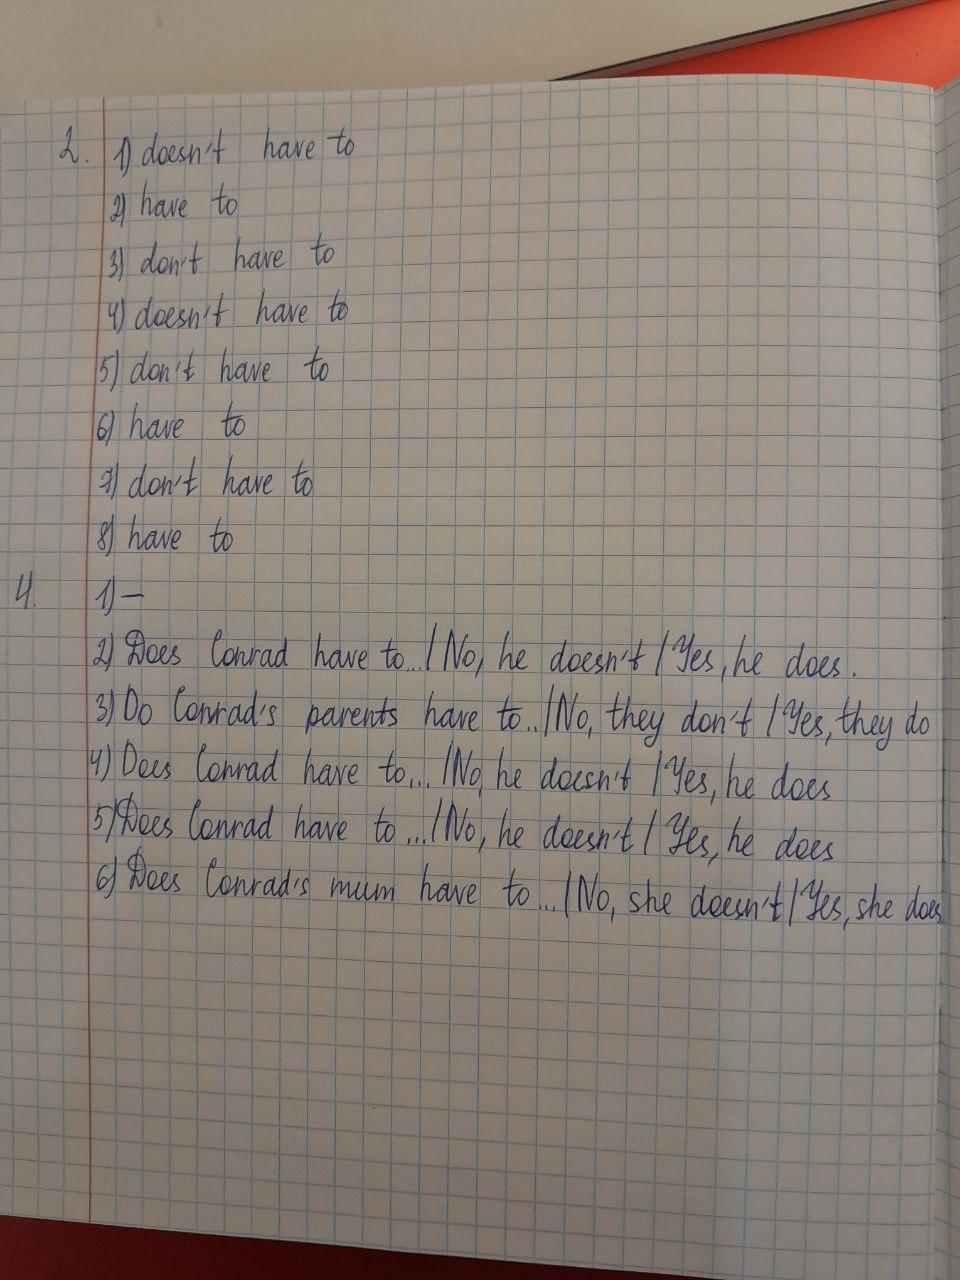 2. 1) doesn't have to
2) have to
3) don't have to
4) doesn't have to
5) don't have to
6) have to
7) don't have to
8) have to
4. 1) —
2) Does Conrad have to... / No, he doesn't / Yes, he does.
3) Do Conrad's parents have to.. / No, they don't / Yes, they do
4) Does Conrad have to... / No, he doesn't / Yes, he does
5) Does Conrad have to... / No, he doesn't / Yes, he does
6) Does Conrad's mum have to... / No, she doesn't / Yes, she does